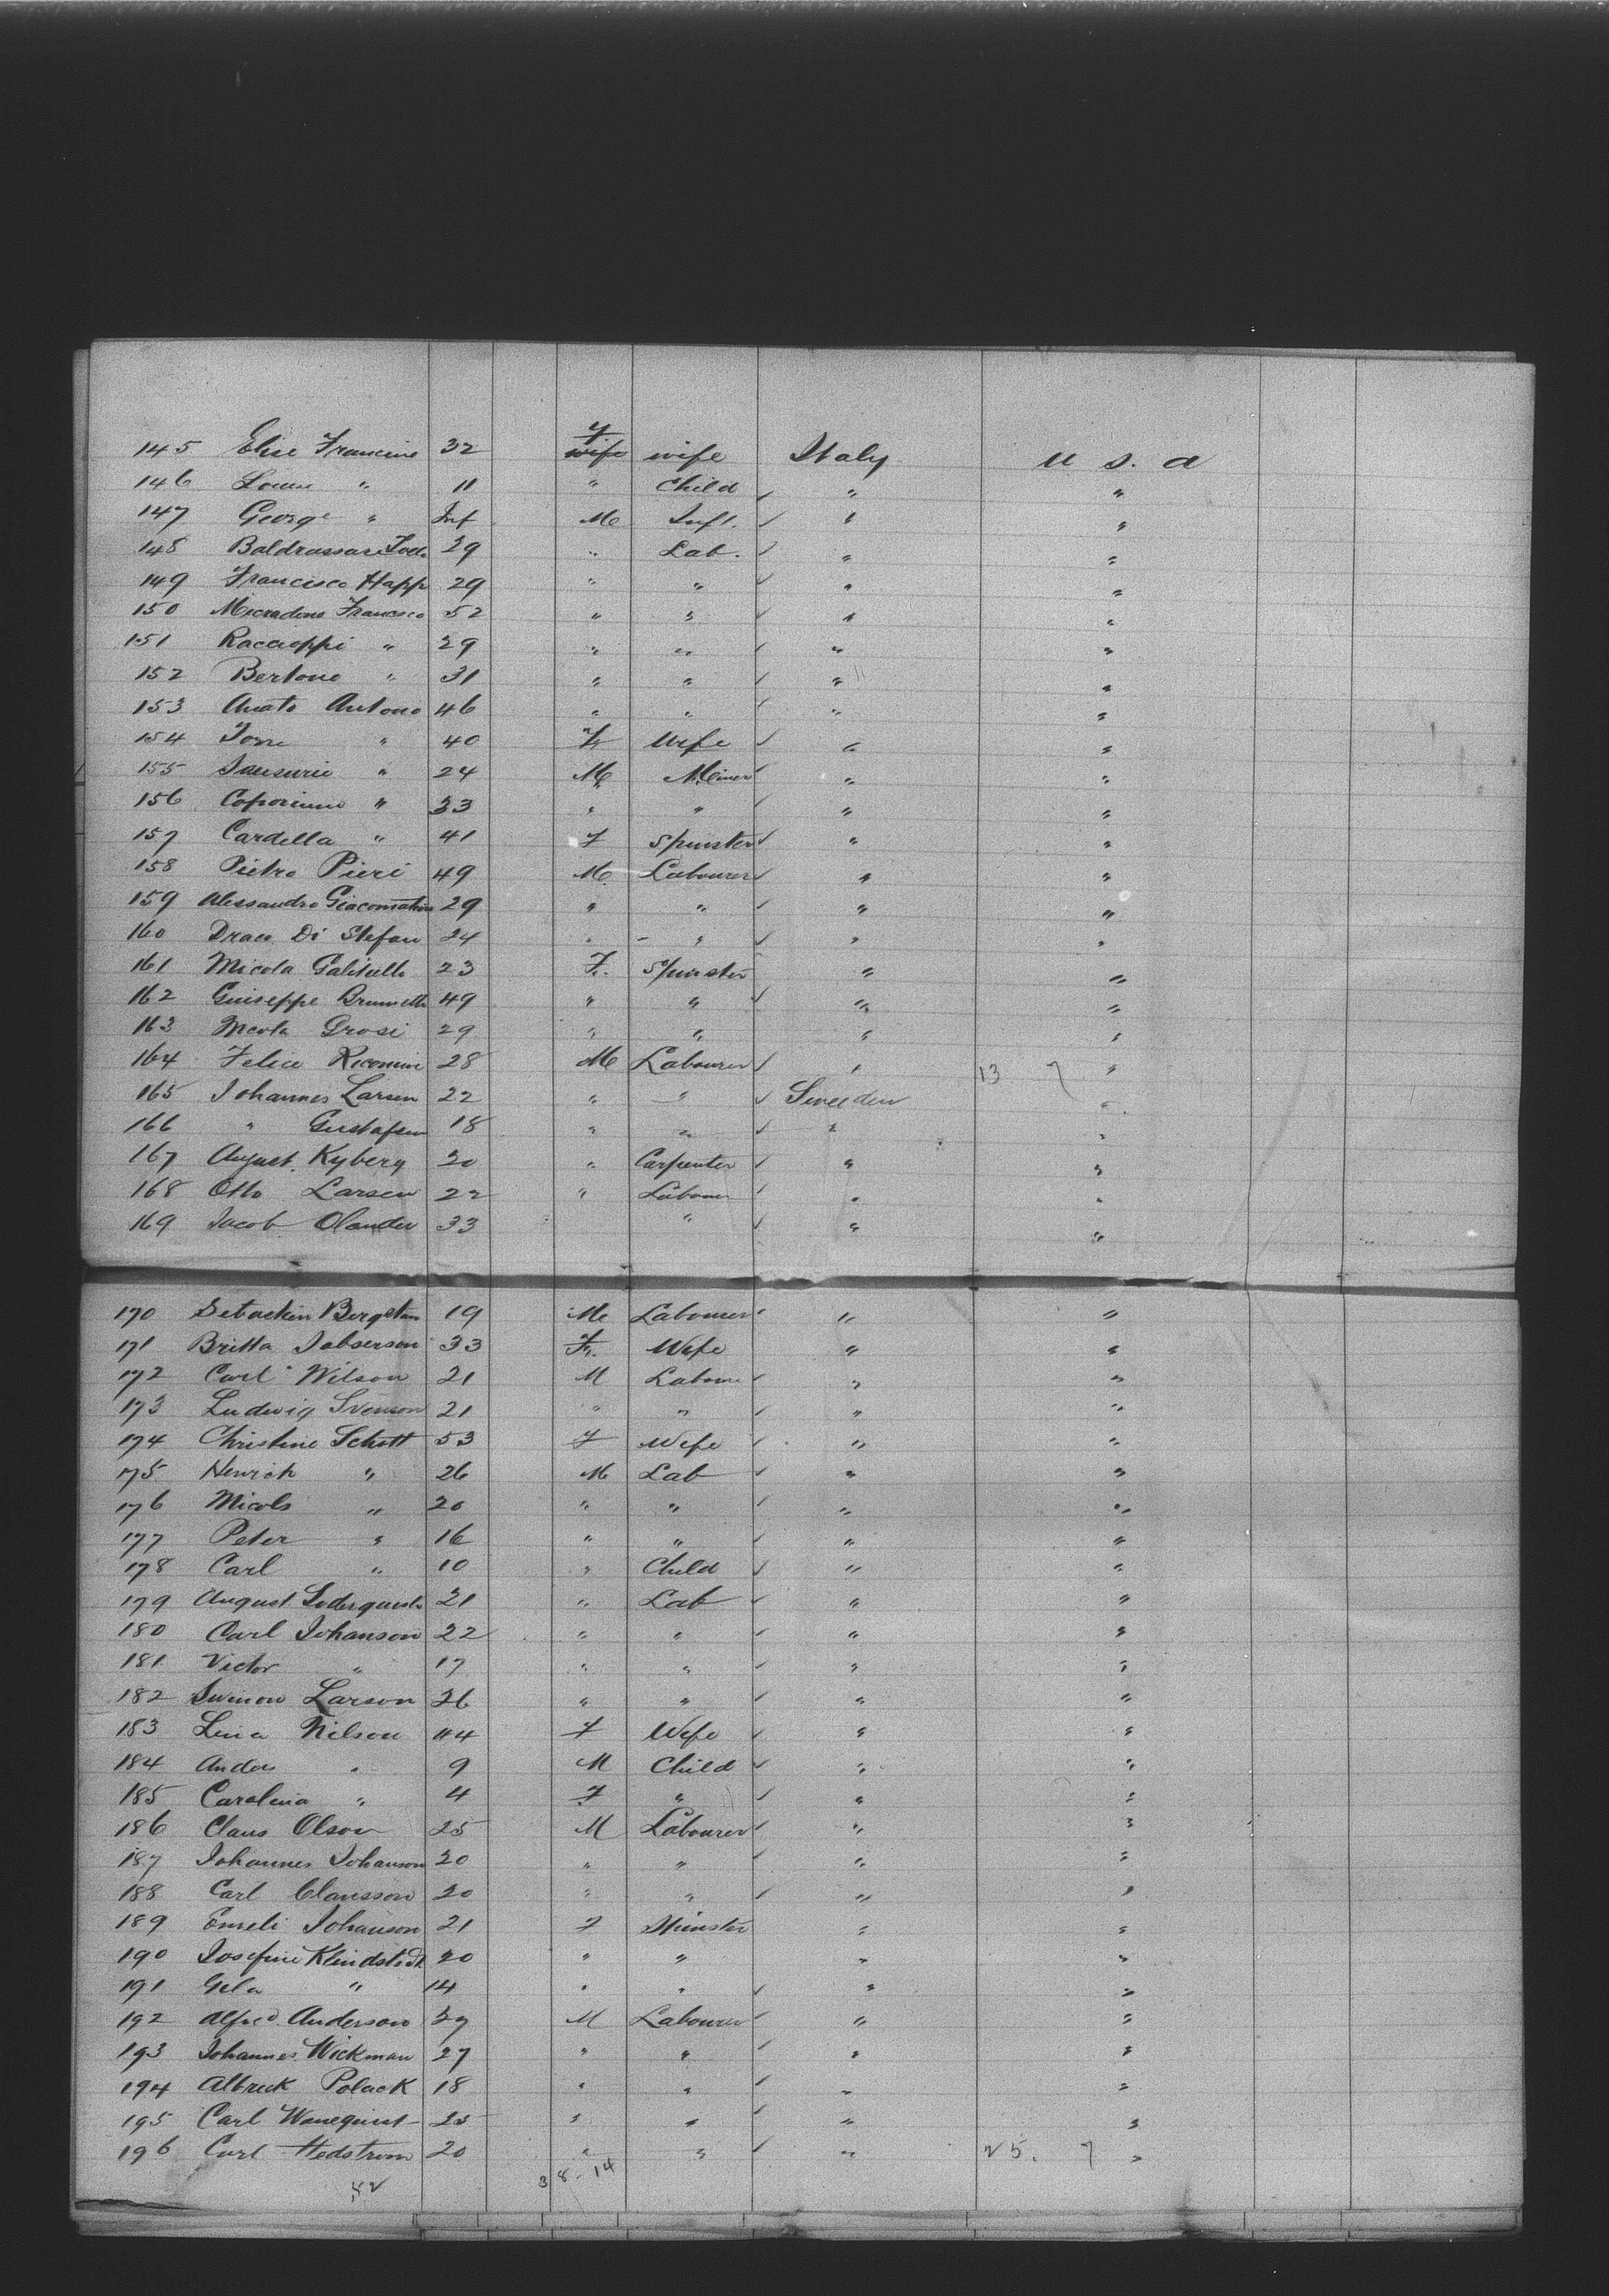 145 Elise Francine 32 F wife wife Italy U S. A
146 Louise " 11 " Child ✓ " "
147 George " Inf M Inft. ✓ " "
148 Baldrassari 29 " Lab. ✓ " "
149 Francisco Happ 29 " " ✓ " "
150 Micradene Francisco 52 " " ✓ " "
151 Raccieppi " 29 " " ✓ " "
152 Bertone " 31 " " ✓ " "
153 Amato Antono 46 " " ✓ " "
154 " 40 F Wife ✓ " "
155 " 24 M Miner ✓ " "
156 " 33 " " ✓ " "
157 Cardella " 41 F Spinster ✓ " "
158 Pietro Pieri 49 M Labourer ✓ " "
159 Alessandro 29 " " ✓ " "
160 Draco Di Stefan 24 " " ✓ " "
161 Micola 23 F. Spinster " "
162 Guiseppe Brunetti 49 " " ✓ " "
163 Micola Grosi 29 " " " "
164 Felice Ricomini 28 M Labourer ✓ " 13 7 "
165 Johannes Larsen 22 " " ✓ Sweeden "
166 " Gustafsen 18 " " ✓ " "
167 August. Kyberg 20 " Carpenter ✓ " "
168 Otto Larsen 22 " Labour ✓ " "
169 Jacob Olander 33 " ✓ " "
170 Bergstan 19 M Labourer ✓ " "
171 Britta 33 F. Wife " "
172 Carl Wilson 21 M Labour ✓ " "
173 Ludwig Svenson 21 " " ✓ " "
174 Christine Schott 53 F Wife ✓ " "
175 Henrich " 26 M Lab ✓ " "
176 Micols " 20 " " ✓ " "
177 Peter " 16 " " ✓ " "
178 Carl " 10 " Child ✓ " "
179 August Soderquist 21 " Lab ✓ " "
180 Carl Johanson 22 " " ✓ " "
181 Victor " 17 " " ✓ " "
182 Larson 26 " " ✓ " "
183 Lina Nilson 44 F Wife ✓ " "
184 Anders " 9 M Child ✓ " "
185 Carolina " 4 F " ✓ " "
186 Claus Olson 25 M Labourer ✓ " "
187 Johannes Johanson 20 " " ✓ " "
188 Carl Clausson 20 " " ✓ " "
189 Emeli Johanson 21 F Spinster " "
190 Josefine 20 " " " "
191 " 14 " " ✓ " "
192 Alfred. Anderson M Labourer ✓ " "
193 Johannes Wickman 27 " " ✓ " "
194 Albreck Polack 18 " " ✓ " "
195 Carl Wanequist " " ✓ " "
196 Carl Hedstrom 20 " " ✓ " 25. 7 "
52 38-14